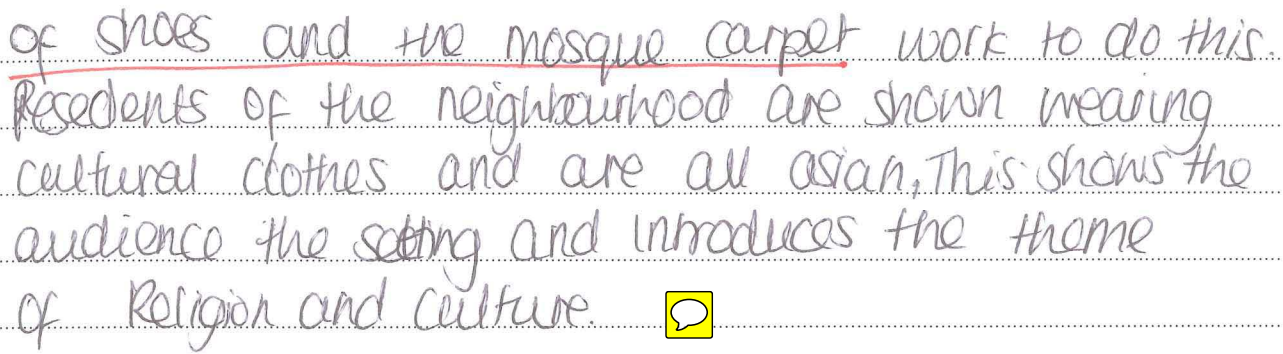 of shoes and the mosque carpet work to do this.
Resedents of the neighbourhood are shown wearing
cultural clothes and are all asian, This shows the
audience the setting and introduces the theme
of Religion and Culture.